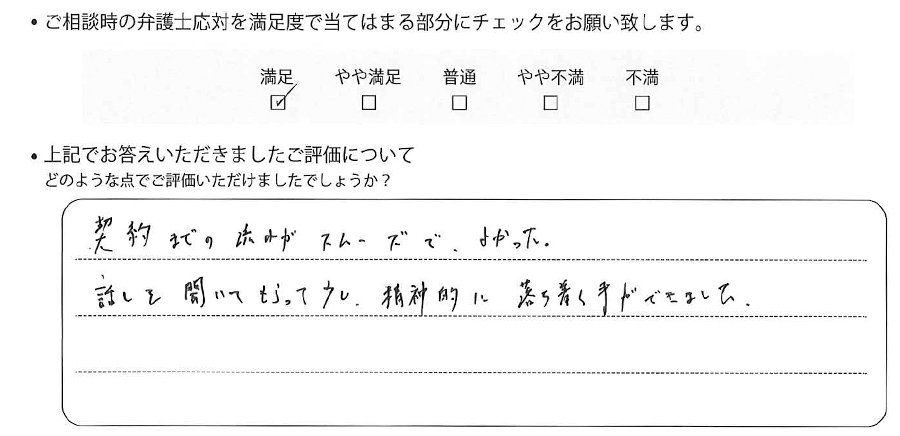 ・ご相談時の弁護士応対を満足度で当てはまる部分にチェックをお願い致します。
満足 やや満足 普通 やや不満 不満
☑ ☐ ☐ ☐ ☐
・上記でお答えいただきましたご評価について
どのような点でご評価いただけましたでしょうか？
契約までの流れがスムーズで、よかった。
話しを聞いてもらって少し、精神的に落ち着く事ができました。